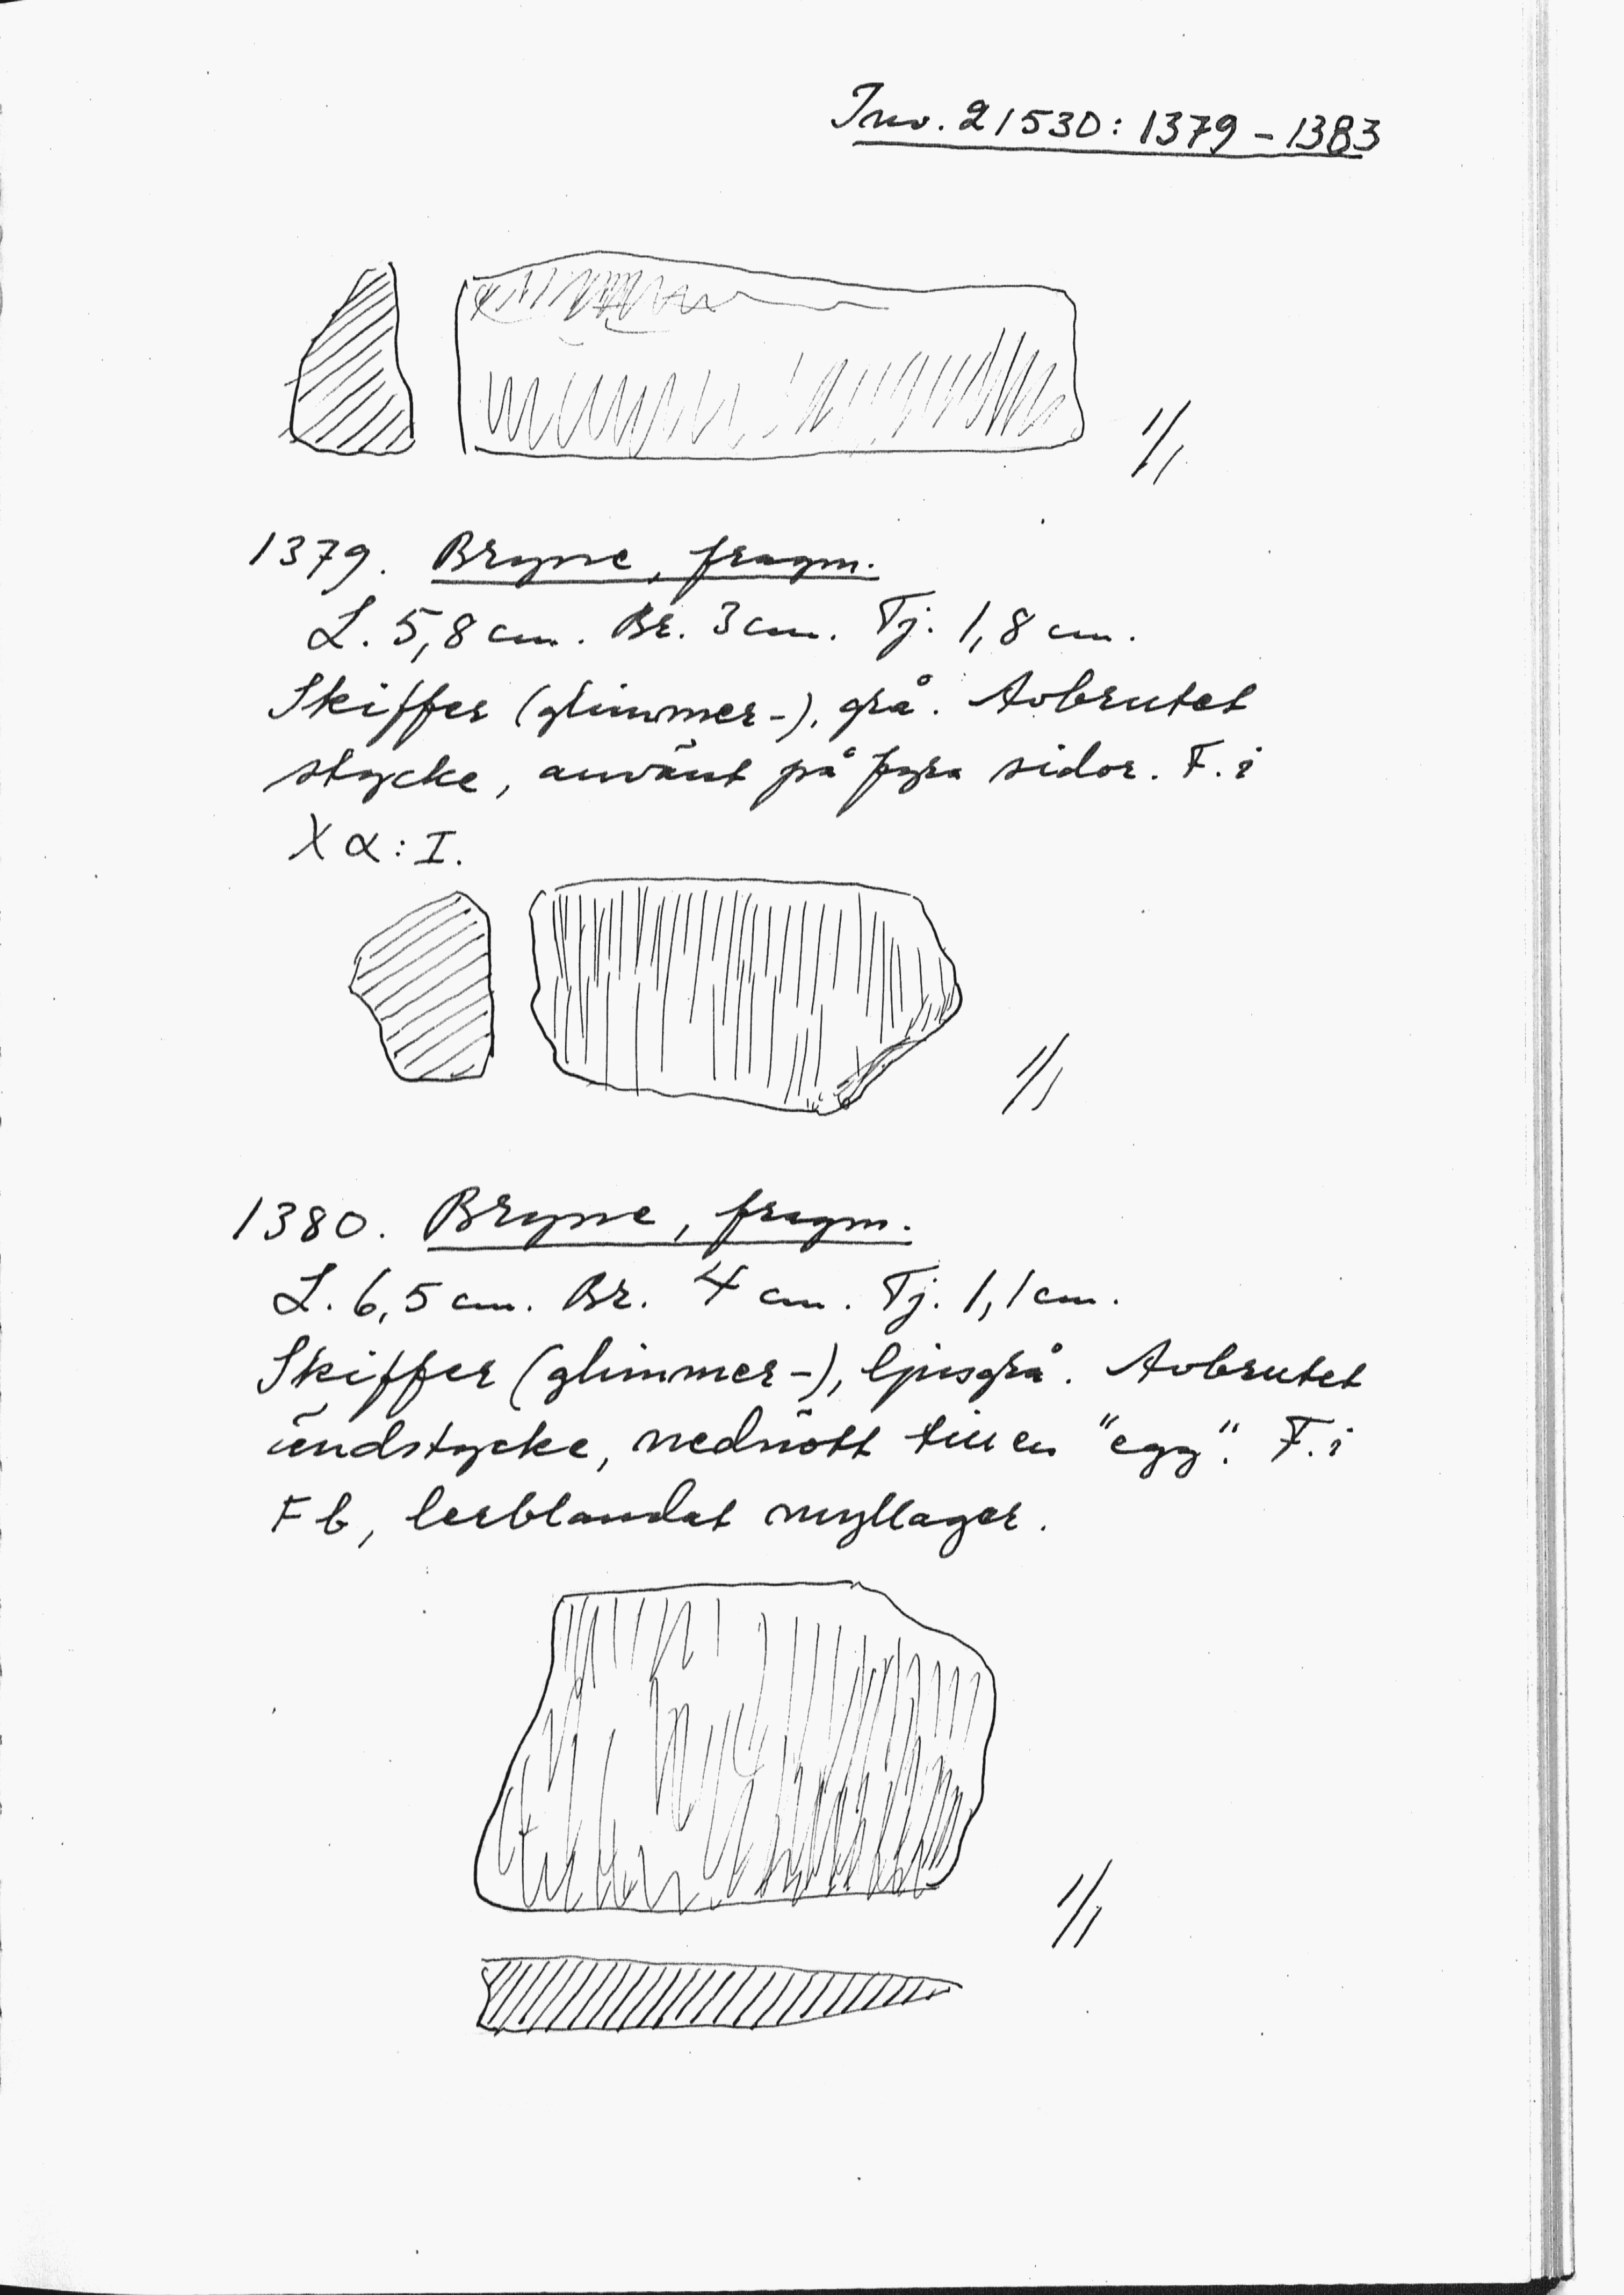 Inv. 21530: 1379 - 1383
1/1
1379. Bryne, fragm.
L. 5,8 cm. Br. 3 cm. Tj. 1,8 cm.
Skiffer (glimmer-), grå. Avbrutet
stycke, använt på fyra sidor. F. i
X α: I.
1/1
1380. Bryne, fragm.
L. 6,5 cm. Br. 4 cm. Tj. 1,1 cm.
Skiffer (glimmer-), ljusgrå. Avbrutet
ändstycke, nednött till en "egg". F. i
F b, lerblandat myllager.
1/1